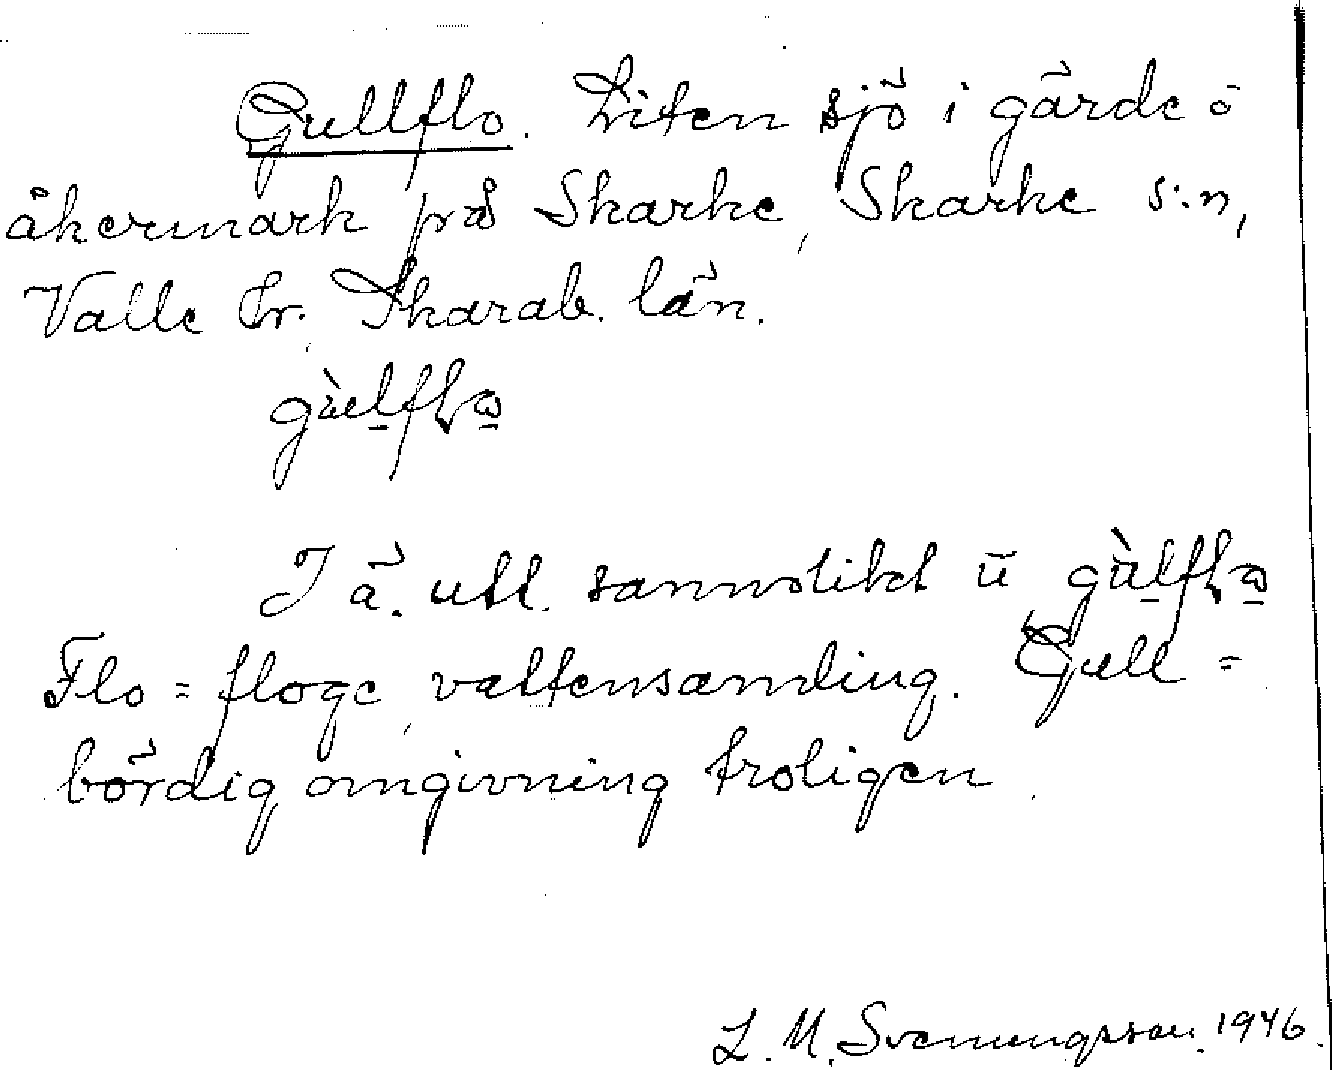 Gullflo. Liten sjö i gärde o
åkermark på Skarke, Skarke s:n,
Valle hr. Skarab. län.
gùlflω
I ä. utt. sannolikt ū gùlflω
Flo = floge, vattensamling. Gull =
bördig omgivning troligen.
L. M. Svenungsson. 1946.